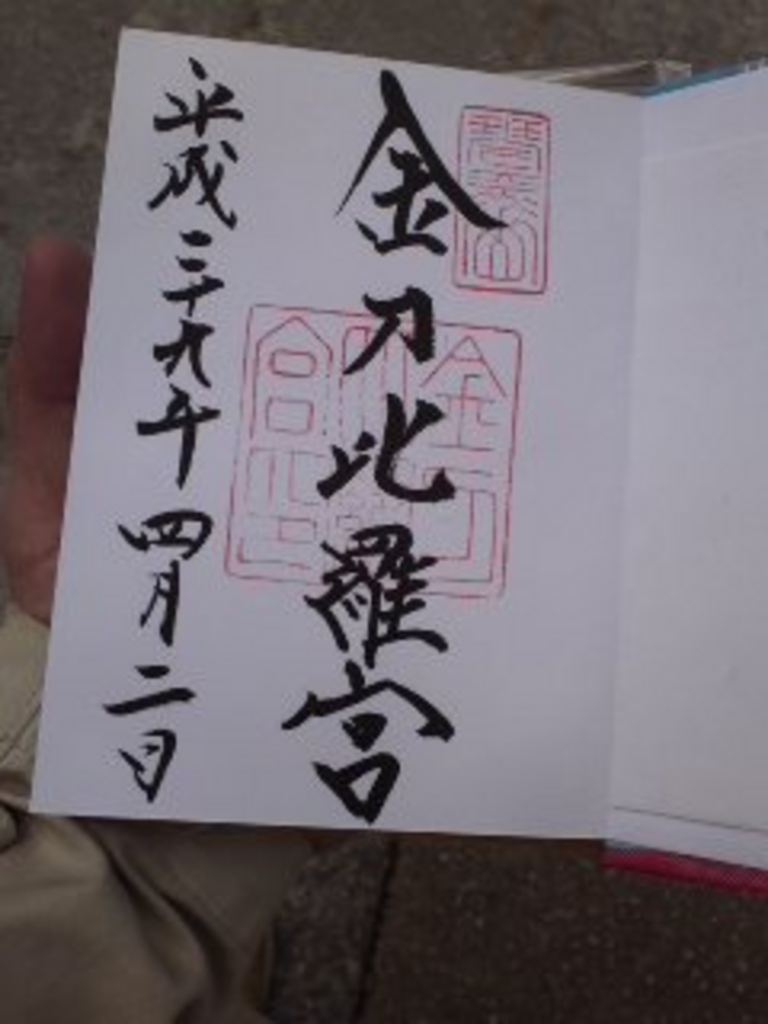 金刀比羅宮
平成二十九年四月二日